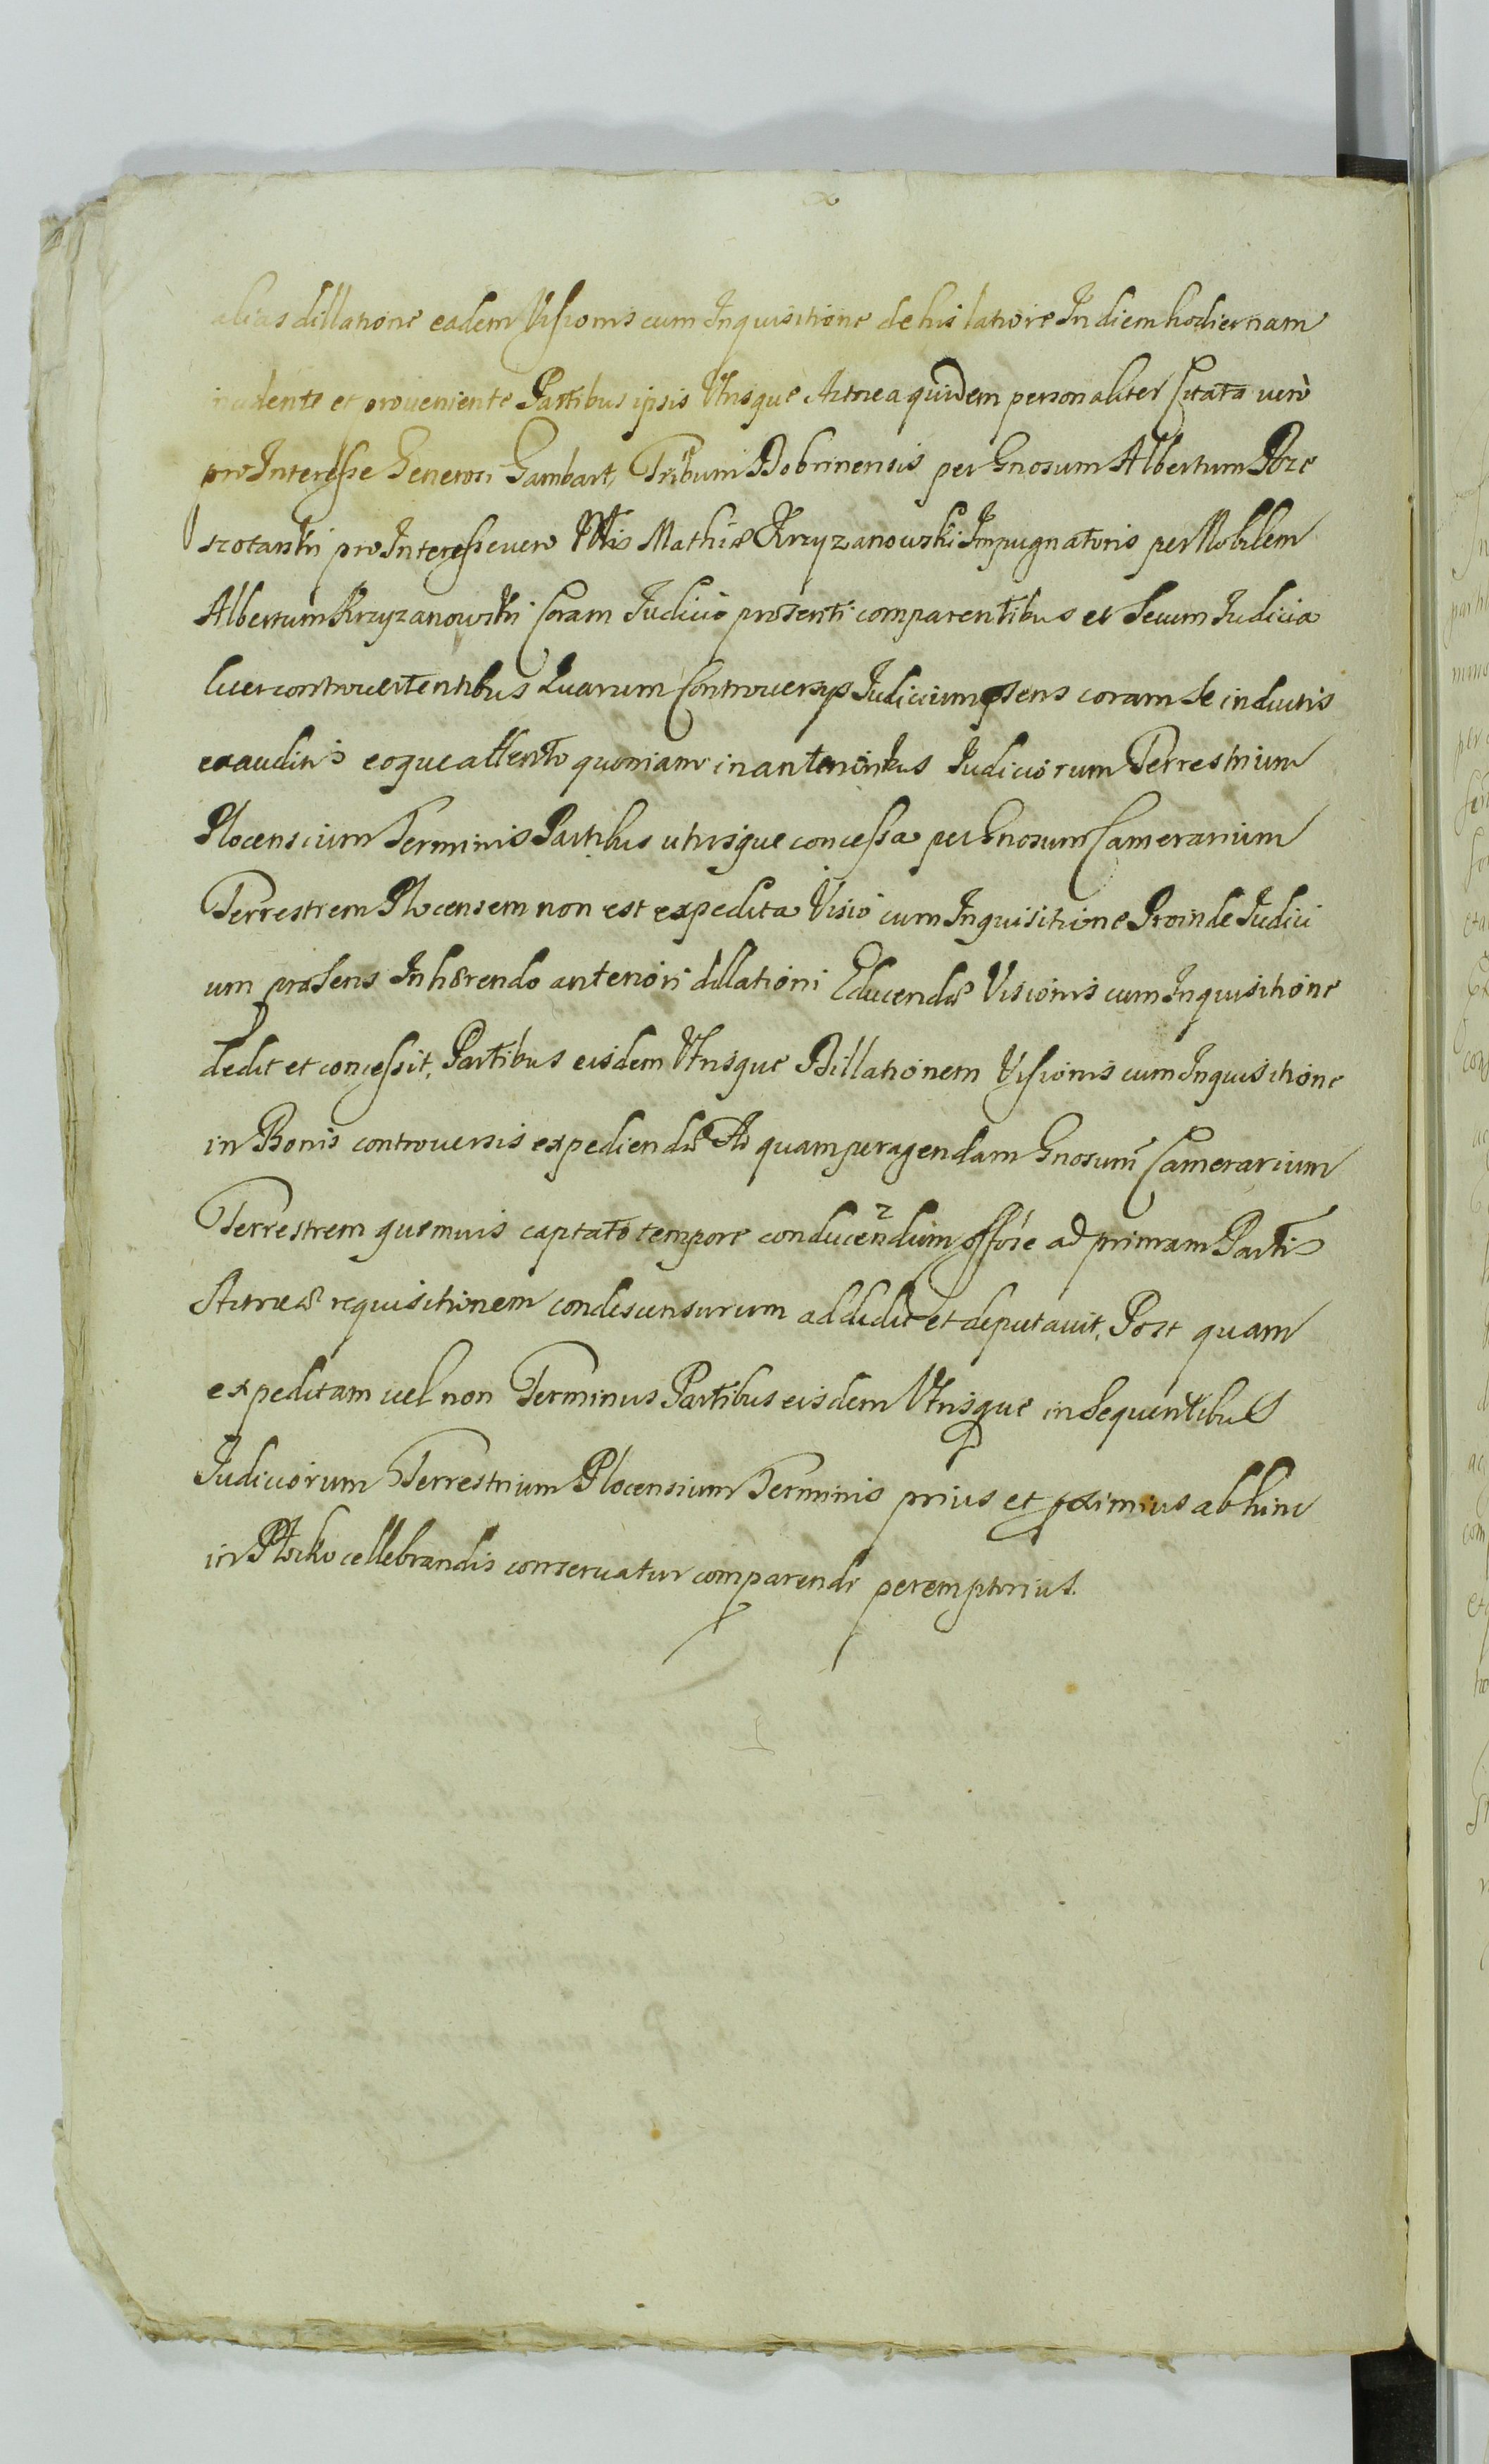 alias dillatione eadem Visionis cum Inquisitione de his latiore In diem hodiernam
cadente et proueniente Partibus ipsis Vtrisque Actorea quidem personaliter Citata vero
pro Interesse Generosi Gambart, Tribuni Dobrinensis per Gnosum Albertum
pro Interesse vero Mathiæ Krzyzanowski Impugnatoris per Nobilem
Albertum Krzyzanowski Coram Iudicio præsenti comparentibus et Secum Iudicia
liter controuertentibus Quarum Controuersys Iudicium psens coram Se inductis
exauditis eoque attento quoniam in anterioribus Iudiciorum Terrestrium
Plocensium Terminis Partibus utrisque concessa per Gnosum Camerarium
Terrestrem Plocensem non est expedita Visio cum Inquisitione Proinde Iudici
um præsens Inhærendo anteriori dillationi Educendæ Visionis cum Inquisitione
dedit et concessit, Partibus eisdem Vtrisque Dillationem Visionis cum Inquisitione
in Bonis controuersis expediendæ Ad quam peragendam Gnosum Camerarium
Terrestrem quemuis captato tempore conducendum ad primam Partis
Actoreæ requisitionem condescensurum addidit et deputauit, Post quam
expeditam uel non Terminus Partibus eisdem Vtrisque in Sequentibus
Iudiciorum Terrestrium Plocensium Terminis prius et pximius abhinc
in Plocko cellebrandis conseruatur comparendi peremptorius.